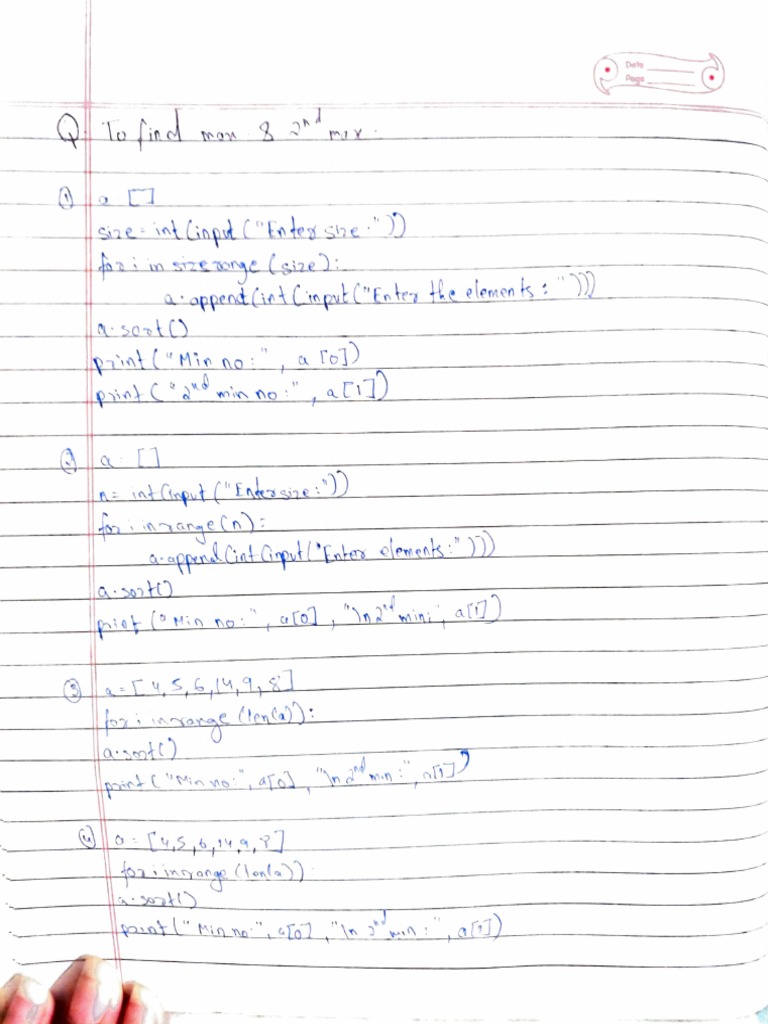 Date
Page
Q. To find max & 2nd max.
① a = []
size = int(input("Enter size:"))
for i in size range (size):
a.append(int(input("Enter the elements: ")))
a.sort()
print("Min no:", a[0])
print("2nd min no:", a[1])
② a = []
n = int(input("Enter size:"))
for i in range(n):
a.append(int(input("Enter elements:")))
a.sort()
print("Min no:", a[0], "\n2nd min:", a[1])
③ a = [4,5,6,14,9,8]
for i in range(len(a)):
a.sort()
print("Min no:", a[0], "\n2nd min:", a[1])
④ a = [4,5,6,14,9,8]
for i in range(len(a))
a.sort()
print("Min no:", a[0], "\n 2nd min:", a[1])